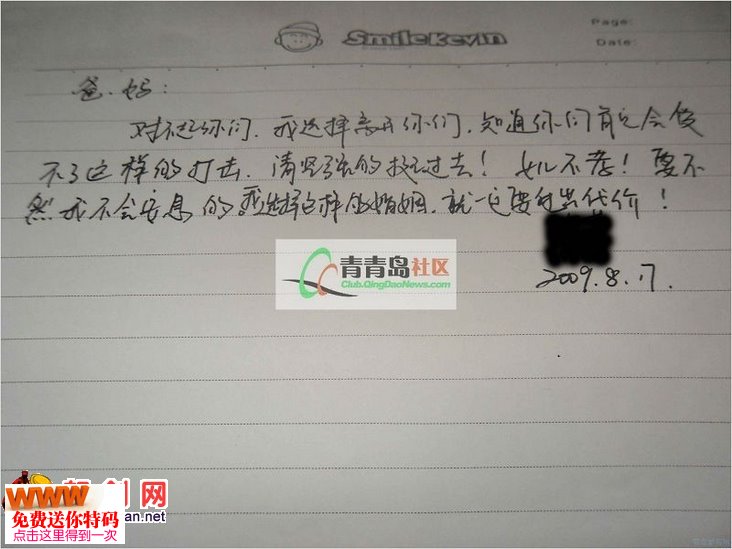 SmileKevin
Page:
Date:
爸.妈:
对不起你们.我选择离开你们.知道你们肯定会受
不了这样的打击.请坚强的挺过去!女儿不孝!要不
然我不会安息的.我选择这样的婚姻.就一定要付出代价!
2009.8.17.
青青岛社区
Club.QingDaoNews.com
创网
an.net
WWW
免费送你特码
点击这里得到一次